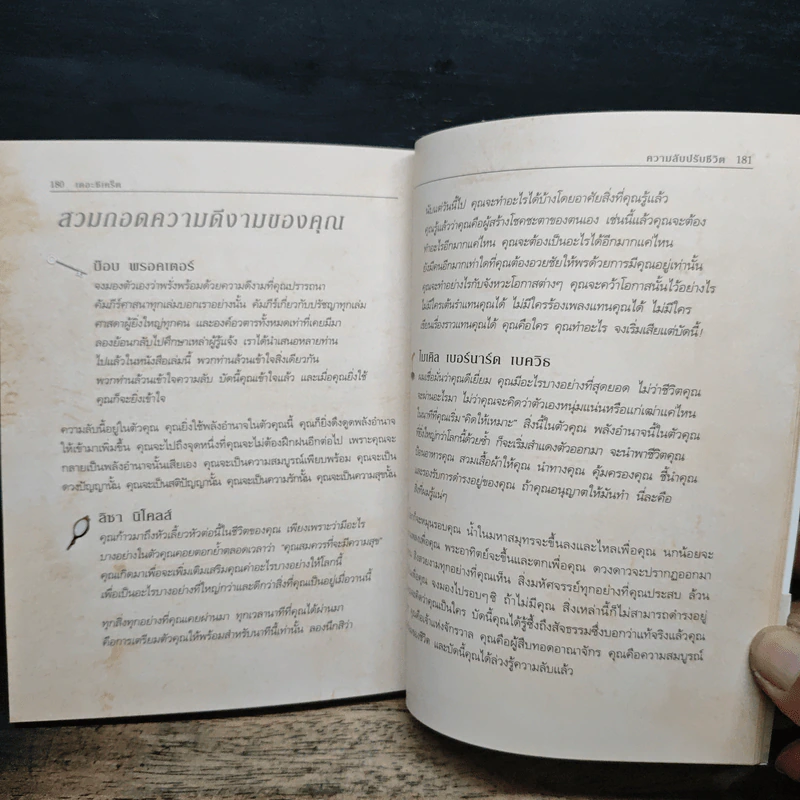 180 เดอะซีเคร็ต
สวมกอดความดีงามของคุณ
บ๊อบ พรอคเตอร์
จงมองตัวเองว่าพรั่งพร้อมด้วยความดีงามที่คุณปรารถนา
คัมภีร์ศาสนาทุกเล่มบอกเราอย่างนั้น คัมภีร์เกี่ยวกับปรัชญาทุกเล่ม
ศาสดาผู้ยิ่งใหญ่ทุกคน และองค์อวตารทั้งหมดเท่าที่เคยมีมา
ลองย้อนกลับไปศึกษาเหล่าผู้รู้แจ้ง เราได้นำเสนอหลายท่าน
ไปแล้วในหนังสือเล่มนี้ พวกท่านล้วนเข้าใจสิ่งเดียวกัน
พวกท่านล้วนเข้าใจความลับ บัดนี้คุณเข้าใจแล้ว และเมื่อคุณยิ่งใช้
คุณก็จะยิ่งเข้าใจ
ความลับนี้อยู่ในตัวคุณ คุณยิ่งใช้พลังอำนาจในตัวคุณนี้ คุณก็ยิ่งดึงดูดพลังอำนาจ
ให้เข้ามาเพิ่มขึ้น คุณจะไปถึงจุดหนึ่งที่คุณจะไม่ต้องฝึกฝนอีกต่อไป เพราะคุณจะ
กลายเป็นพลังอำนาจนั้นเสียเอง คุณจะเป็นความสมบูรณ์เพียบพร้อม คุณจะเป็น
ดวงปัญญานั้น คุณจะเป็นสติปัญญานั้น คุณจะเป็นความรักนั้น คุณจะเป็นความสุขนั้น
ลิซา นิโคลส์
คุณก้าวมาถึงหัวเลี้ยวหัวต่อนี้ในชีวิตของคุณ เพียงเพราะว่ามีอะไร
บางอย่างในตัวคุณคอยตอกย้ำตลอดเวลาว่า "คุณสมควรที่จะมีความสุข"
คุณเกิดมาเพื่อจะเพิ่มเติมเสริมคุณค่าอะไรบางอย่างให้โลกนี้
เพื่อเป็นอะไรบางอย่างที่ใหญ่กว่าและดีกว่าสิ่งที่คุณเป็นอยู่เมื่อวานนี้
ทุกสิ่งทุกอย่างที่คุณเคยผ่านมา ทุกเวลานาทีที่คุณได้ผ่านมา
คือการเตรียมตัวคุณให้พร้อมสำหรับนาทีนี้เท่านั้น ลองนึกสิว่า
ความลับปรับชีวิต 181
นับแต่วันนี้ไป คุณจะทำอะไรได้บ้างโดยอาศัยสิ่งที่คุณรู้แล้ว
คุณรู้แล้วว่าคุณคือผู้สร้างโชคชะตาของตนเอง เช่นนี้แล้วคุณจะต้อง
ทำอะไรอีกมากแค่ไหน คุณจะต้องเป็นอะไรได้อีกมากแค่ไหน
ยังมีคนอีกมากเท่าใดที่คุณต้องอวยชัยให้พรด้วยการมีคุณอยู่เท่านั้น
คุณจะทำอย่างไรกับจังหวะโอกาสต่างๆ คุณจะคว้าโอกาสนั้นไว้อย่างไร
ไม่มีใครเต้นรำแทนคุณได้ ไม่มีใครร้องเพลงแทนคุณได้ ไม่มีใคร
เขียนเรื่องราวแทนคุณได้ คุณคือใคร คุณทำอะไร จงเริ่มเสียแต่บัดนี้!
ไมเคิล เบอร์นาร์ด เบควิธ
ผมเชื่อมั่นว่าคุณดีเยี่ยม คุณมีอะไรบางอย่างที่สุดยอด ไม่ว่าชีวิตคุณ
จะผ่านอะไรมา ไม่ว่าคุณจะคิดว่าตัวเองหนุ่มแน่นหรือแก่เฒ่าแค่ไหน
ในนาทีที่คุณเริ่ม "คิดให้เหมาะ" สิ่งนี้ในตัวคุณ พลังอำนาจนี้ในตัวคุณ
ที่ยิ่งใหญ่กว่าโลกนี้ด้วยซ้ำ ก็จะเริ่มสำแดงตัวออกมา จะนำพาชีวิตคุณ
ป้อนอาหารคุณ สวมเสื้อผ้าให้คุณ นำทางคุณ คุ้มครองคุณ ชี้นำคุณ
และรองรับการดำรงอยู่ของคุณ ถ้าคุณอนุญาตให้มันทำ นี่ละคือ
สิ่งที่ผมรู้แน่ๆ
หมุนรอบคุณ น้ำในมหาสมุทรจะขึ้นลงและไหลเพื่อคุณ นกน้อยจะ
เพื่อคุณ พระอาทิตย์จะขึ้นและตกเพื่อคุณ ดวงดาวจะปรากฏออกมา
สิ่งสวยงามทุกอย่างที่คุณเห็น สิ่งมหัศจรรย์ทุกอย่างที่คุณประสบ ล้วน
เพื่อคุณ จงมองไปรอบๆ ซิ ถ้าไม่มีคุณ สิ่งเหล่านี้ก็ไม่สามารถดำรงอยู่
คิดว่าคุณเป็นใคร บัดนี้คุณได้รู้ซึ้งถึงสัจธรรมซึ่งบอกว่าแท้จริงแล้วคุณ
คือเจ้าแห่งจักรวาล คุณคือผู้สืบทอดอาณาจักร คุณคือความสมบูรณ์
และบัดนี้คุณได้ล่วงรู้ความลับแล้ว